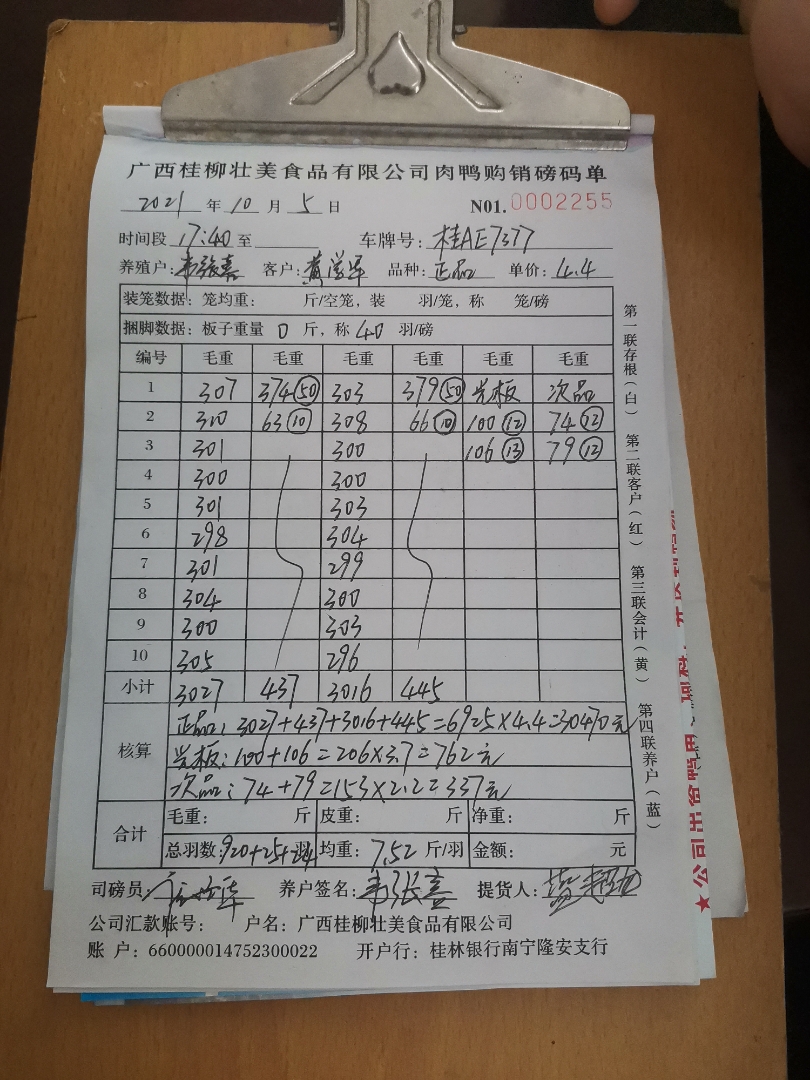 广西桂柳壮美食品有限公司肉鸭购销磅码单
2021 年 10 月 5 日 N01. 0002255
时间段 17:40 至 车牌号: 桂AE7377
养殖户: 客户: 品种: 正品 单价: 4.4
装笼数据: 笼均重: 斤/空笼, 装 羽/笼, 称 笼/磅
捆脚数据: 板子重量 0 斤, 称 40 羽/磅
编号 毛重 毛重 毛重 毛重 毛重 毛重
1 307 374 50 303 379 50 光板 次品
2 310 63 10 308 66 10 100 12 74 12
3 301 300 106 13 79 12
4 300 300
5 301 303
6 298 304
7 301 299
8 304 300
9 300 303
10 305 296
小计 3027 437 3016 445
核算
正品: 3027+437+3016+445=6925×4.4=30470元
光板: 100+106=206×3.7=762元
次品: 74+79=153×2.2=337元
合计
毛重: 斤 皮重: 斤 净重: 斤
总羽数: 920+25+24 羽 均重: 7.52 斤/羽 金额: 元
司磅员: 养户签名: 提货人:
公司汇款账号: 户名: 广西桂柳壮美食品有限公司
账 户: 660000014752300022 开户行: 桂林银行南宁隆安支行
第一联存根(白) 第二联客户(红) 第三联会计(黄) 第四联养户(蓝)